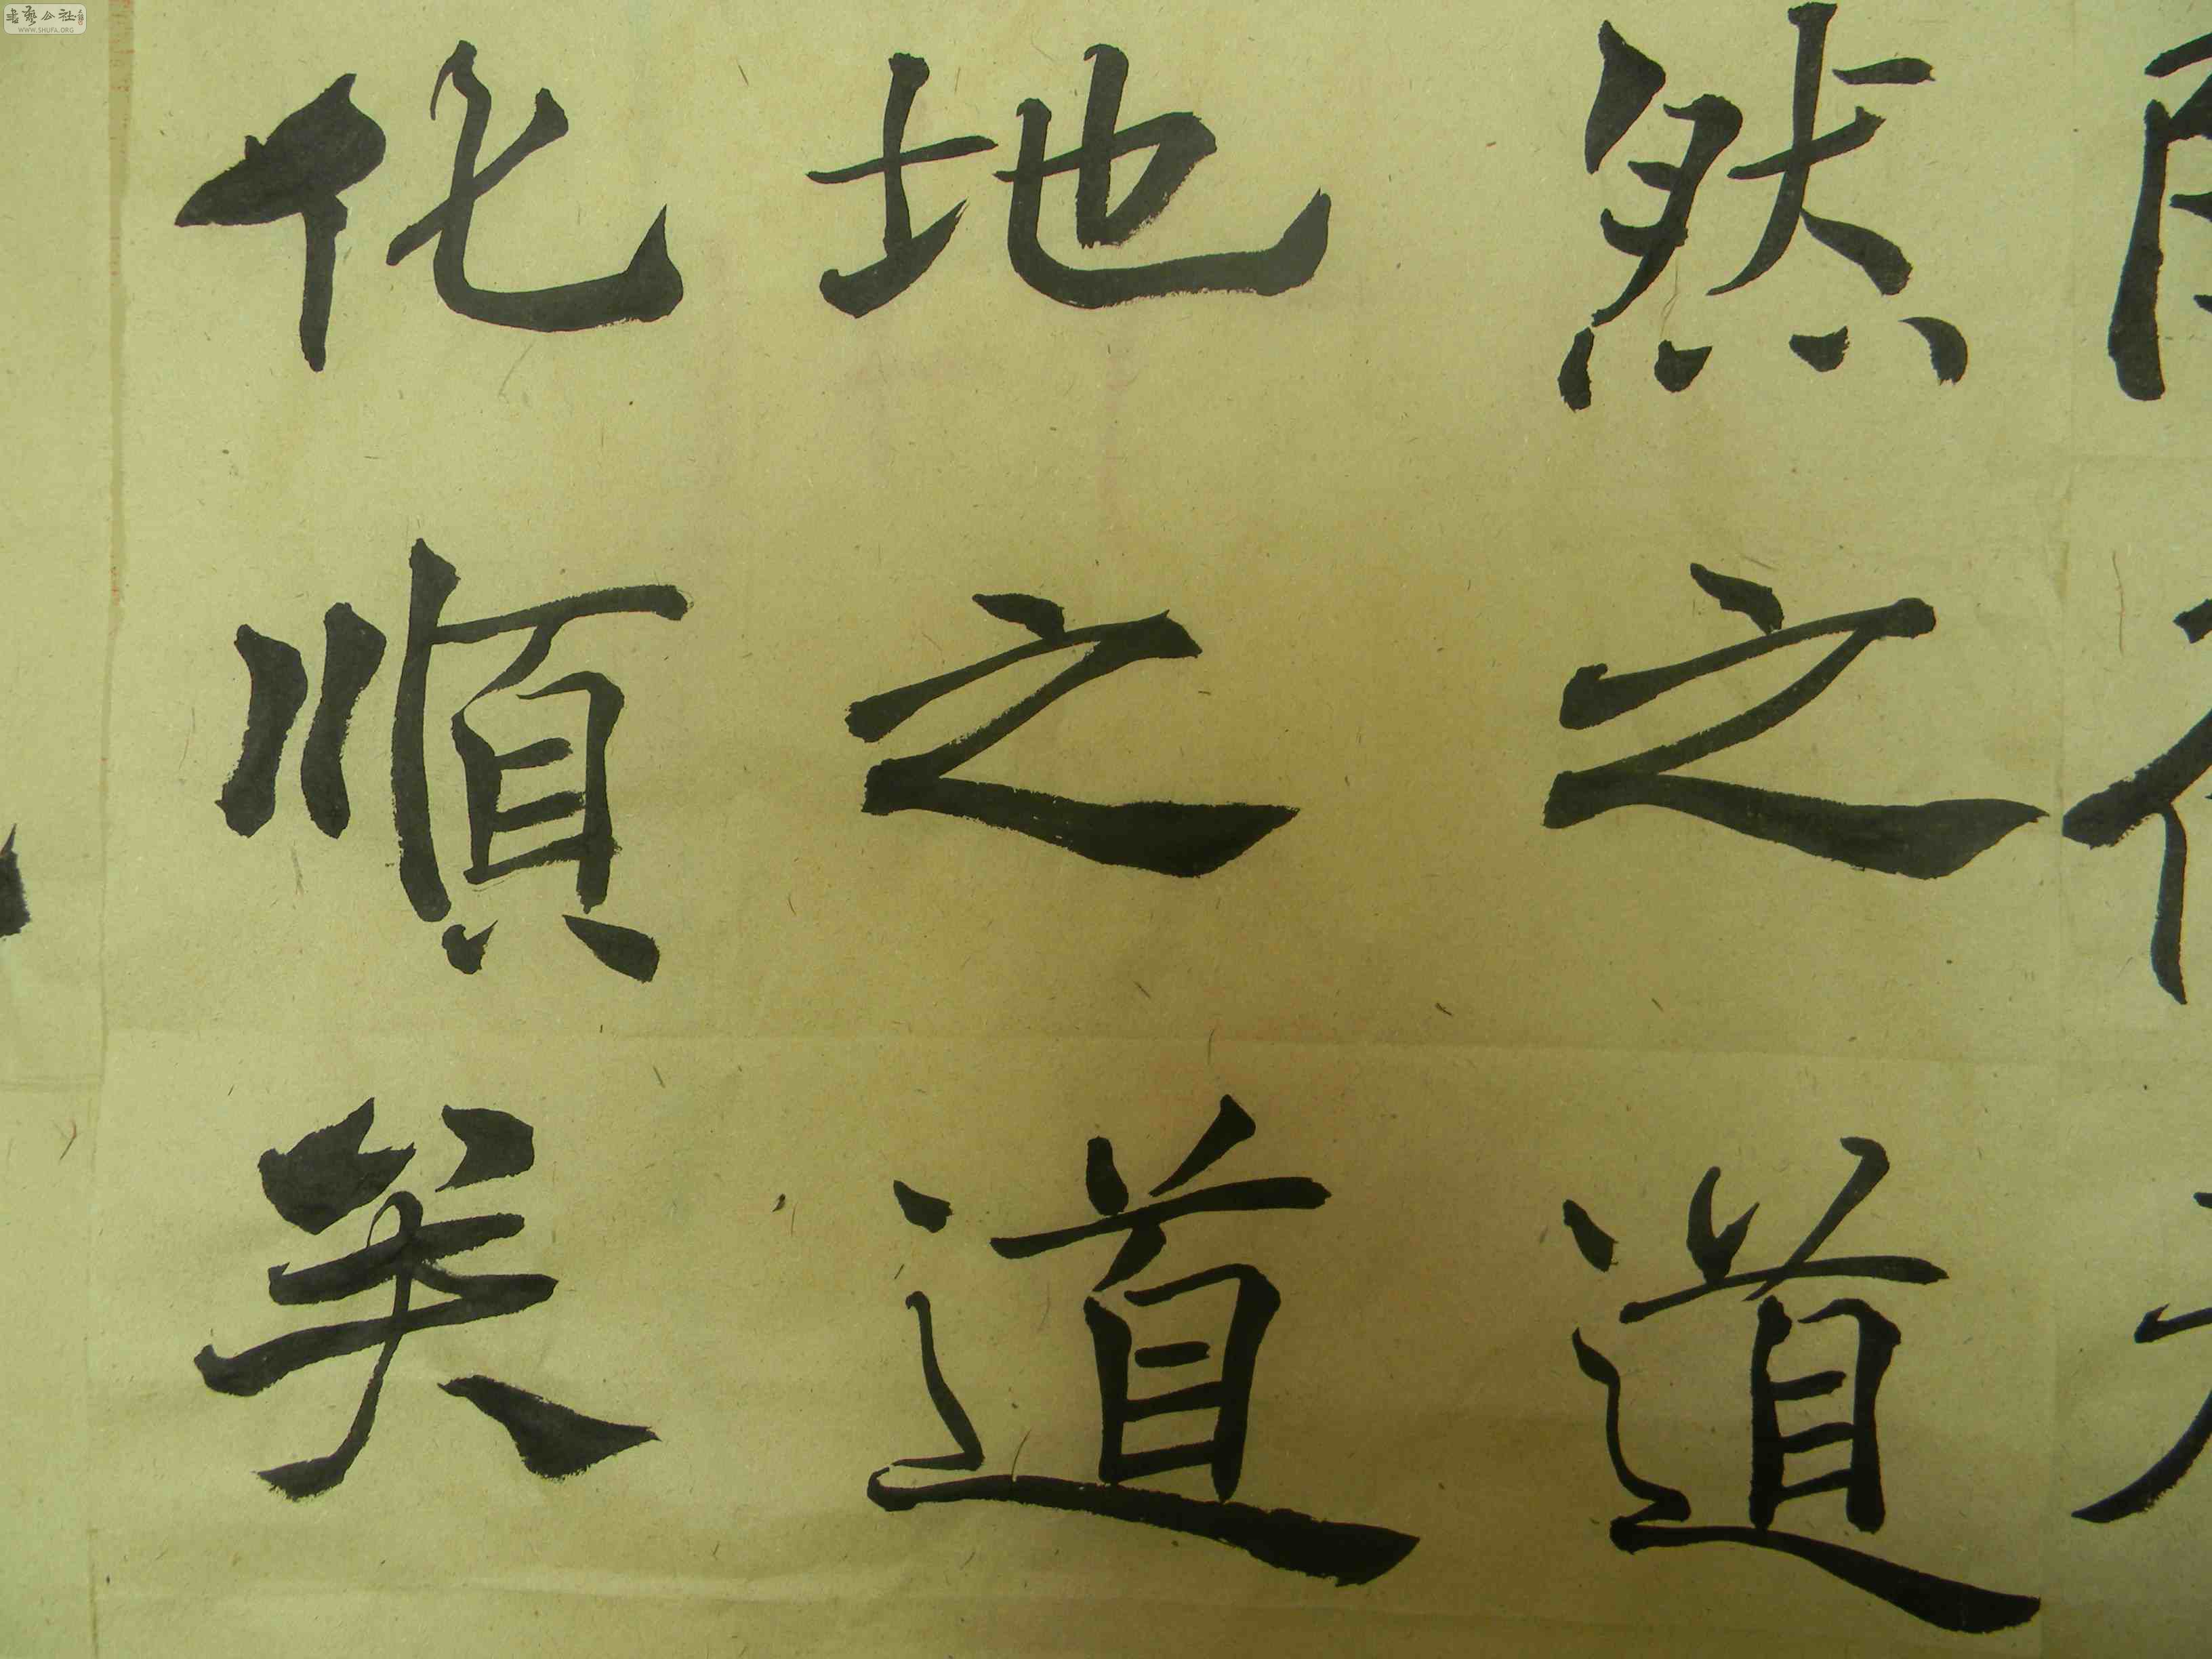 然之道
地之道
化順矣
書藝公社
WWW.SHUFA.ORG